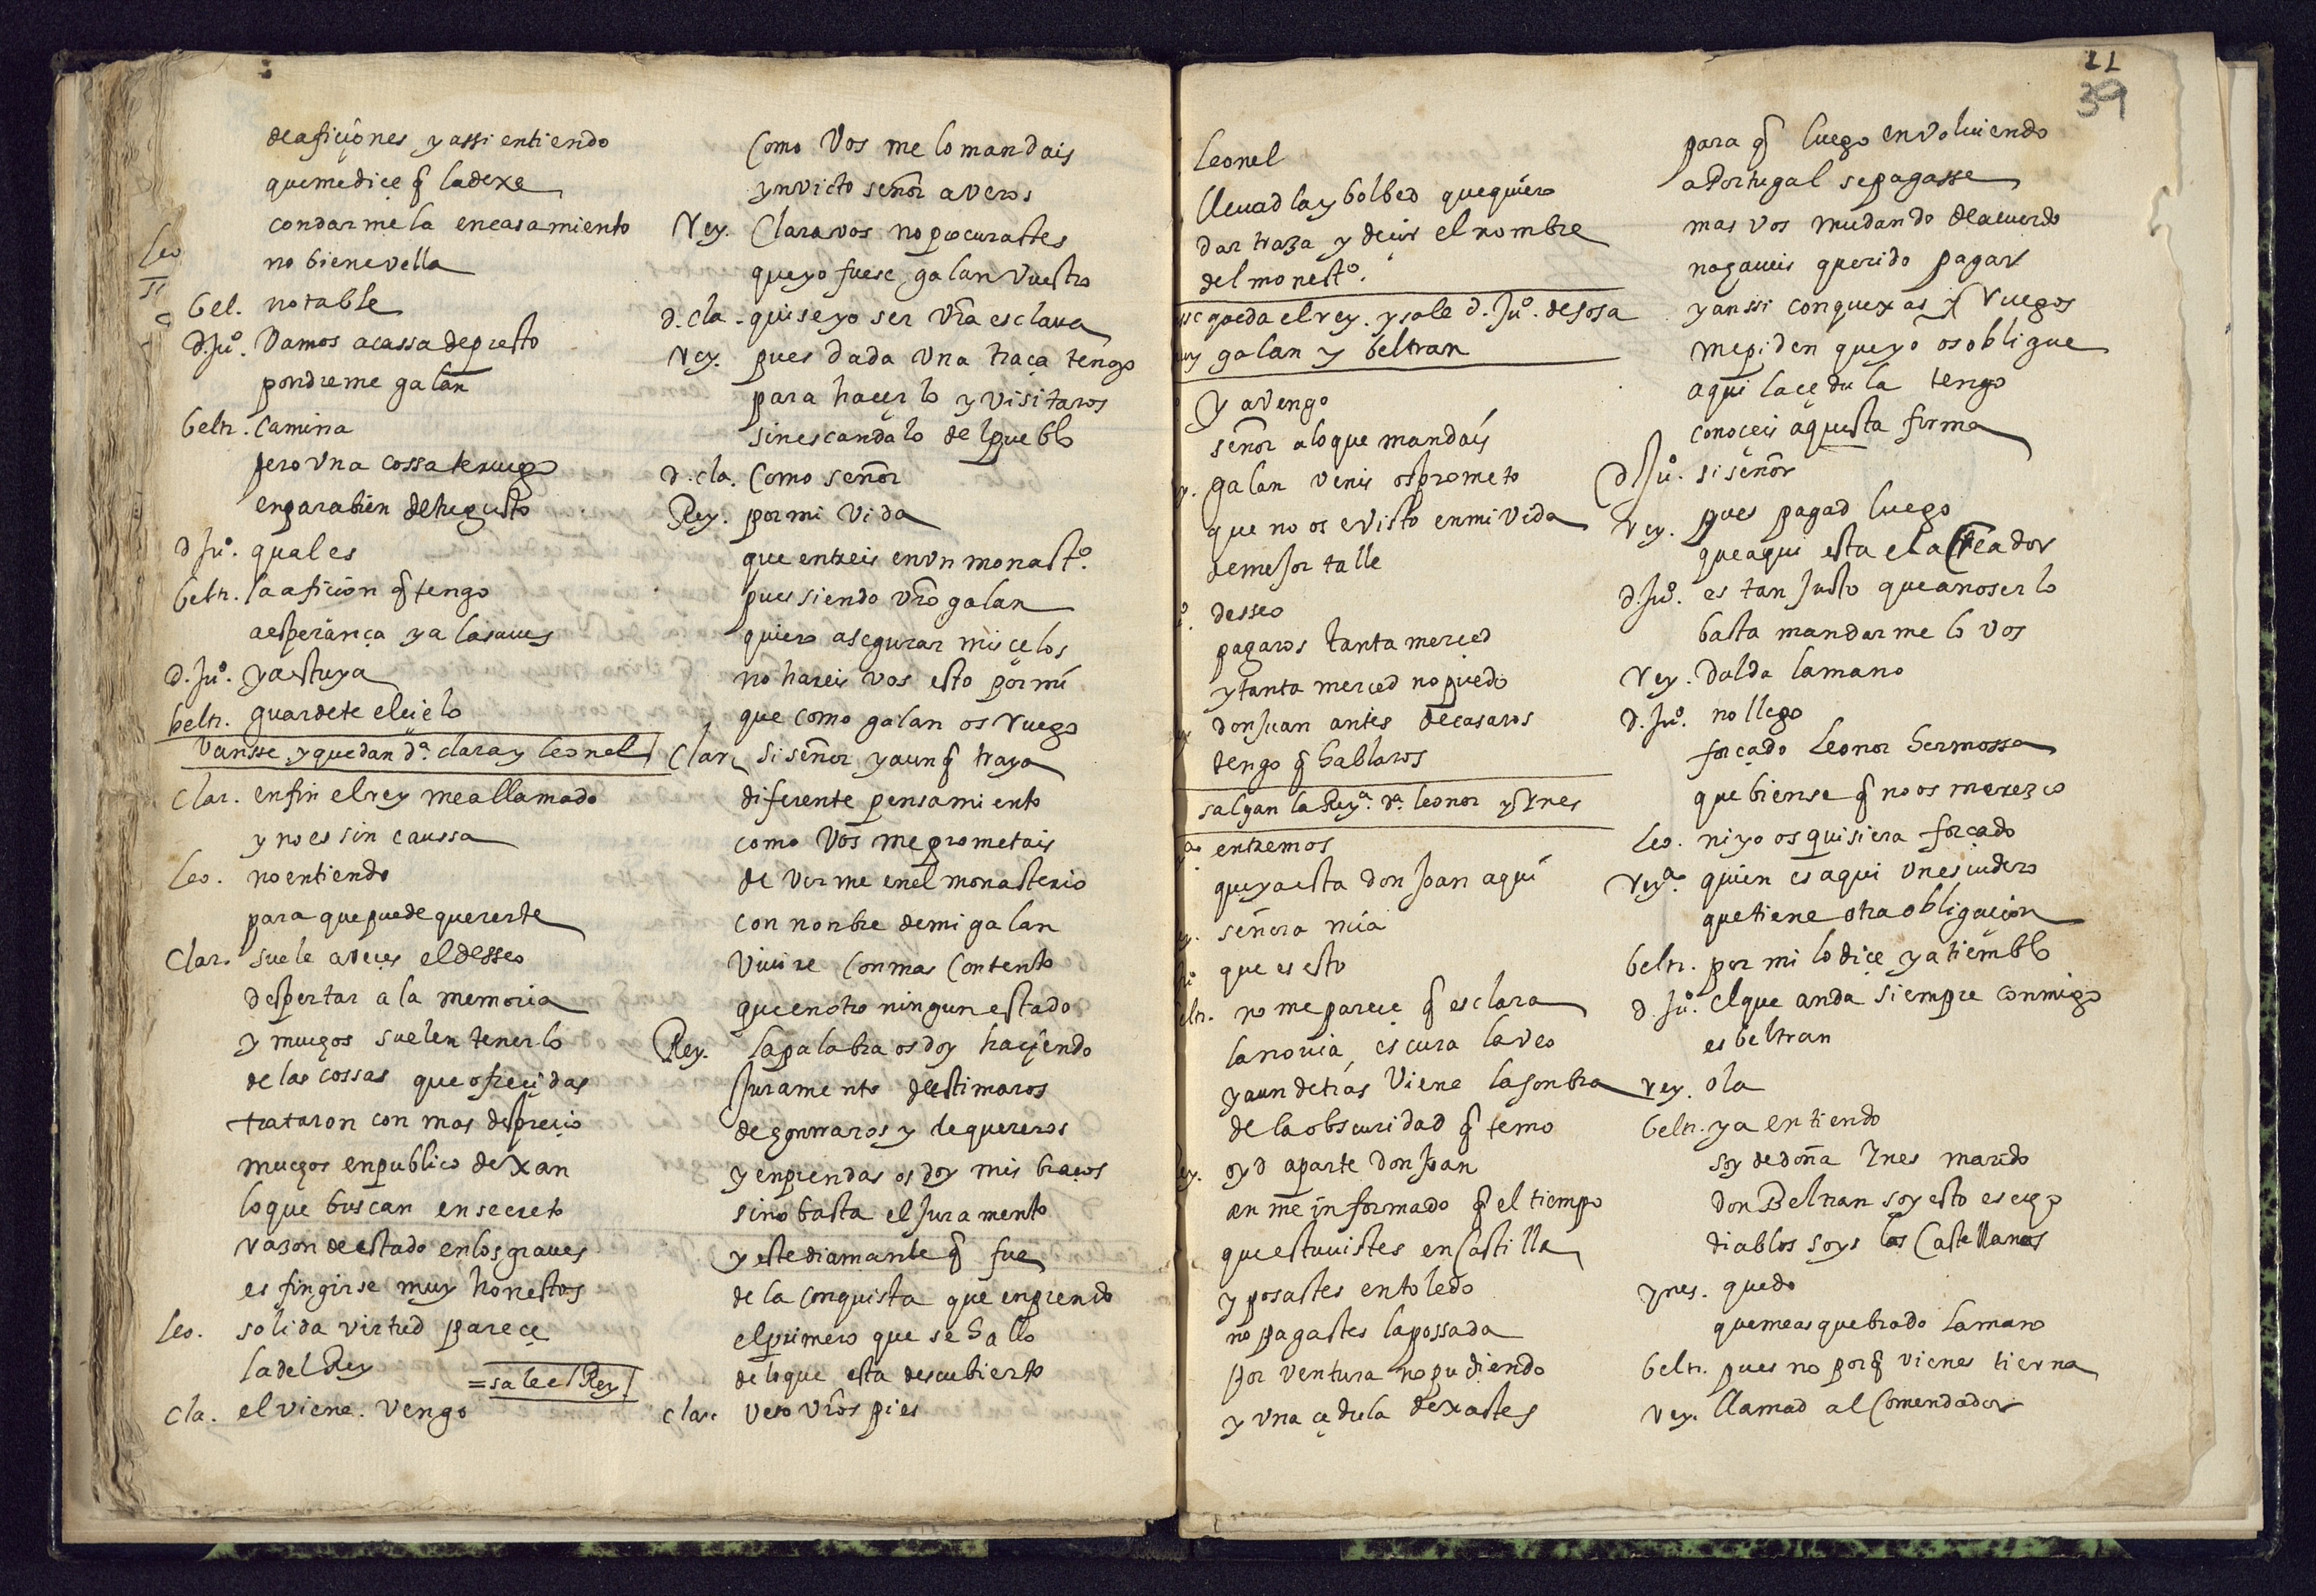 de afiçiones y assi entiendo
que me diçe q̃ la dexe
con darmela en casamiento
Leo
no bien e vella
bel. notable
d. Juº. Vamos a cassa de presto
pondreme galan
beltr. camina
pero vna cossa te ruego
en parabien de tu gusto
d Juº. qual es
beltr. la afiçion q̃ tengo
a esperança ya la saues
d. Juº. ya es tuya
beltr. guardete el çielo
Vansse, y quedan dª. clara y leonel
Clar. en fin el rey me a llamado
y no es sin caussa
Leo. no entiendo
para que puede quererte
Clar. suele a veçes el desseo
despertar a la memoria
y muchos suelen tenerlo
de las cossas que ofreçidas
trataron con mas despreçio
muchos en publico dexan
lo que buscan en secreto
razon de estado en los graues
es fingirse muy honestos
Leo. solida virtud pareçe
la del Rey
= sale el Rey
Cla. el viene. Vengo
Como Vos me lo mandais
ynvicto señor a veros
Rey. Clara vos no procurastes
que yo fuese galan Vuestro
d. cla. quise yo ser vr̃a esclaua
Rey. pues dada vna traça tengo
para haçerlo y visitaros
sin escandalo del pueblo
d. cla. Como señor
Rey. por mi vida
que entreis en vn monastº.
pues siendo vr̃o galan
quiero asegurar mis çelos
no hareis vos esto por mi
que como galan os ruego
Clar. si señor, y aunq̃ traya
diferente pensamiento
como Vos me prometais
de verme en el monasterio
con nonbre de mi galan
viuire con mas contento
que en otro ningun estado
Rey. la palabra os doy haçiendo
Juramento de estimaros
de honrraros y de quereros
y en prendas os doy mis braços
si no basta el Juramento
y este diamante q̃ fue
de la conquista que enprendo
el primero que se hallo
de lo que esta descubierto
Clar. Veso vr̃os pies
21
39
Leonel
lleuadla y bolbed que quiero
dar traza y deçir el nombre
del monestº.
queda el rey. y sale d. Juº. de sosa
galan y beltran
Y a vengo
señor a lo que mandais
galan venis os prometo
que no os e visto en mi vida
de mejor talle
desseo
pagaros tanta merced
y tanta merced no puedo
don Juan antes de casaros
tengo q̃ hablaros
salgan la Reyª. dª. leonor y Ynes
entremos
que ya esta don Joan aqui
señora mia
que es esto
eltr. no me pareçe q̃ es clara
la novia, escura la veo
y aun detras Viene la sonbra
de la obscuridad q̃ temo
oyd aparte don Joan
an me informado q̃ el tiempo
que estuuistes en Castilla
y posastes en toledo
no pagastes la possada
por ventura no pudiendo
y vna çedula dexastes
para q̃ luego en volviendo
a Portugal se pagasse
mas vos mudando de acuerdo
no haueis querido pagar
y anssi con quexas y ruegos
me piden que yo os obligue
aqui la çedula tengo
conoçeis aquesta firma
d Juº. si señor
rey. pues pagad luego
que aqui esta el acreador
d. Juº. es tan Justo que a no serlo
basta mandarme lo vos
Rey. dalda la mano
d. Juº. no llego
forçado Leonor hermossa
que bien se q̃ no os merezco
Leo. ni yo os quisiera forçado
reyª. quien es aqui vn escudero
que tiene otra obligaçion
beltr. por mi lo diçe ya tiemblo
d. Juº. el que anda siempre conmigo
es beltran
rey. ola
beltr. ya entiendo
soy de doña Ynes marido
don Beltran soy esto es echo
diablos soys las Castellanas
ynes. quedo
que me as quebrado la mano
beltr. pues no porq̃ vienes tierna
rey. llamad al Comendador